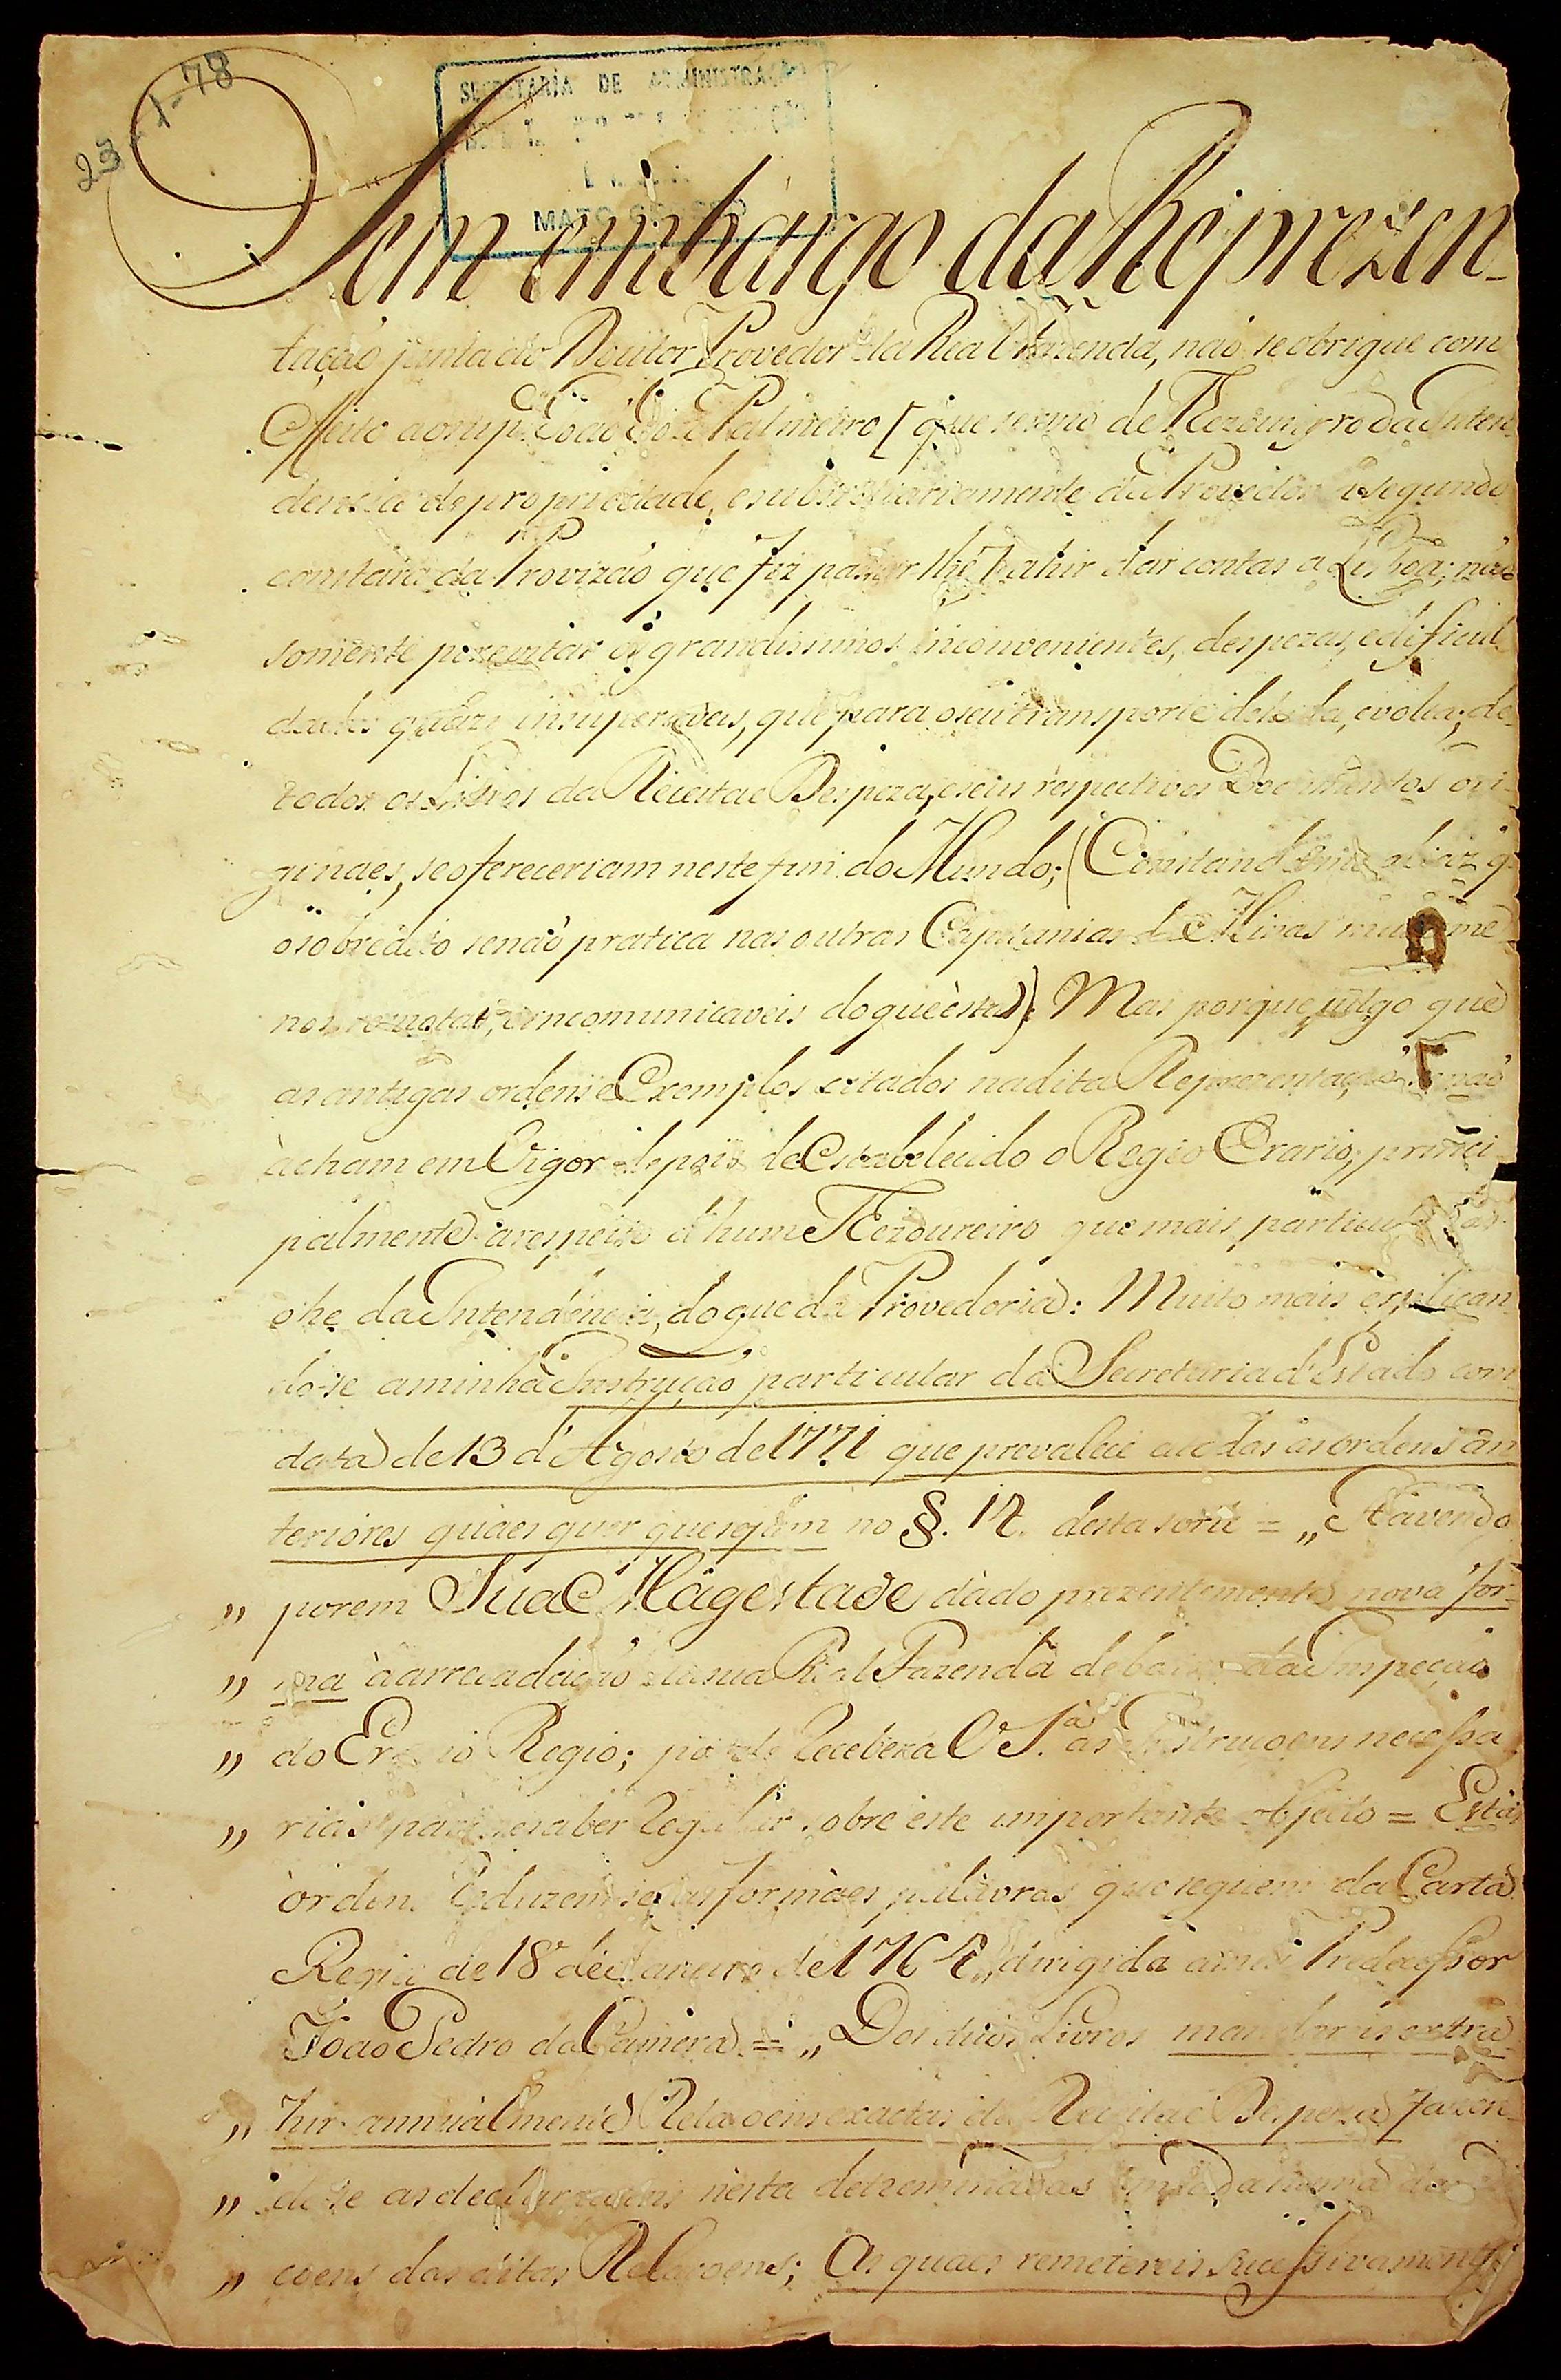 23-1-78
SECRETARIA DE ADMINISTRAÇÃO
MATO GROSSO
Sem embargo da Reprezen-
tação junta do Doutor Provedor da Real Fazenda, naõ se obrigue com
effeito ao sup.e Joaõ Jozé Palmeiro [que servio de Tezoureiro da Inten-
dencia de propriedade, e subsidiariamente da Provedoria segundo
constará da Provizaõ que fiz passar-lhe] a hir dar contas a Lisboa; naõ
somente por evitar os grandissimos inconvenientes, despezas, e dificul-
dades quazi insuperaveis, que para o seu transporte de hida, e volta; de
todos os Livros da Receita e Despeza, e seus respectivos Documentos ori-
ginaes, se offereceriam neste fim do Mundo; (Constando-me aliaz q.
o sobredito se naõ pratica nas outras Capitanias de Minas muito me-
nos remotas, e incomunicaveis do que esta): Mas porque julgo que
as antigas ordens e Exemplos citados na dita Reprezentaçaõ se naõ
acham em Vigor depois de Estabelecido o Regio Erario, princi-
palmente a respeito d'hum Tezoureiro que mais particular
o he da Intendencia, do que da Provedoria: Muito mais explican-
do-se a minha Instruçaõ particular da Secretaria d'Estado com
data de 13 d'Agosto de 1771 que prevalece a todas as ordens an-
teriores quaes quer que sejam no §. 17. desta sorte = „ Havendo
„ porem Sua Magestade dado prezentemente nova for-
„ ma à arrecadaçaõ da sua Real Fazenda debaixo da Inspeçaõ
„ do Erario Regio; por elle Receberá V. S.ª as Instruçoens necessa-
„ rias para se saber Regular sobre este importante objecto = Esta
ordem Reduzem-se as formaes palavras que seguem da Carta
Regia de 18 de Janeiro de 1765, dirigida a meu Predecessor
Joaõ Pedro da Camera = „ Dos ditos Livros mandareis extra-
„ hir annualmente Relacoens exactas da Receita e Despeza fazen-
„ do-se as declaraçoens nesta determinadas
„ coens das ditas Relacoens; As quaes remetereis sucessivamente